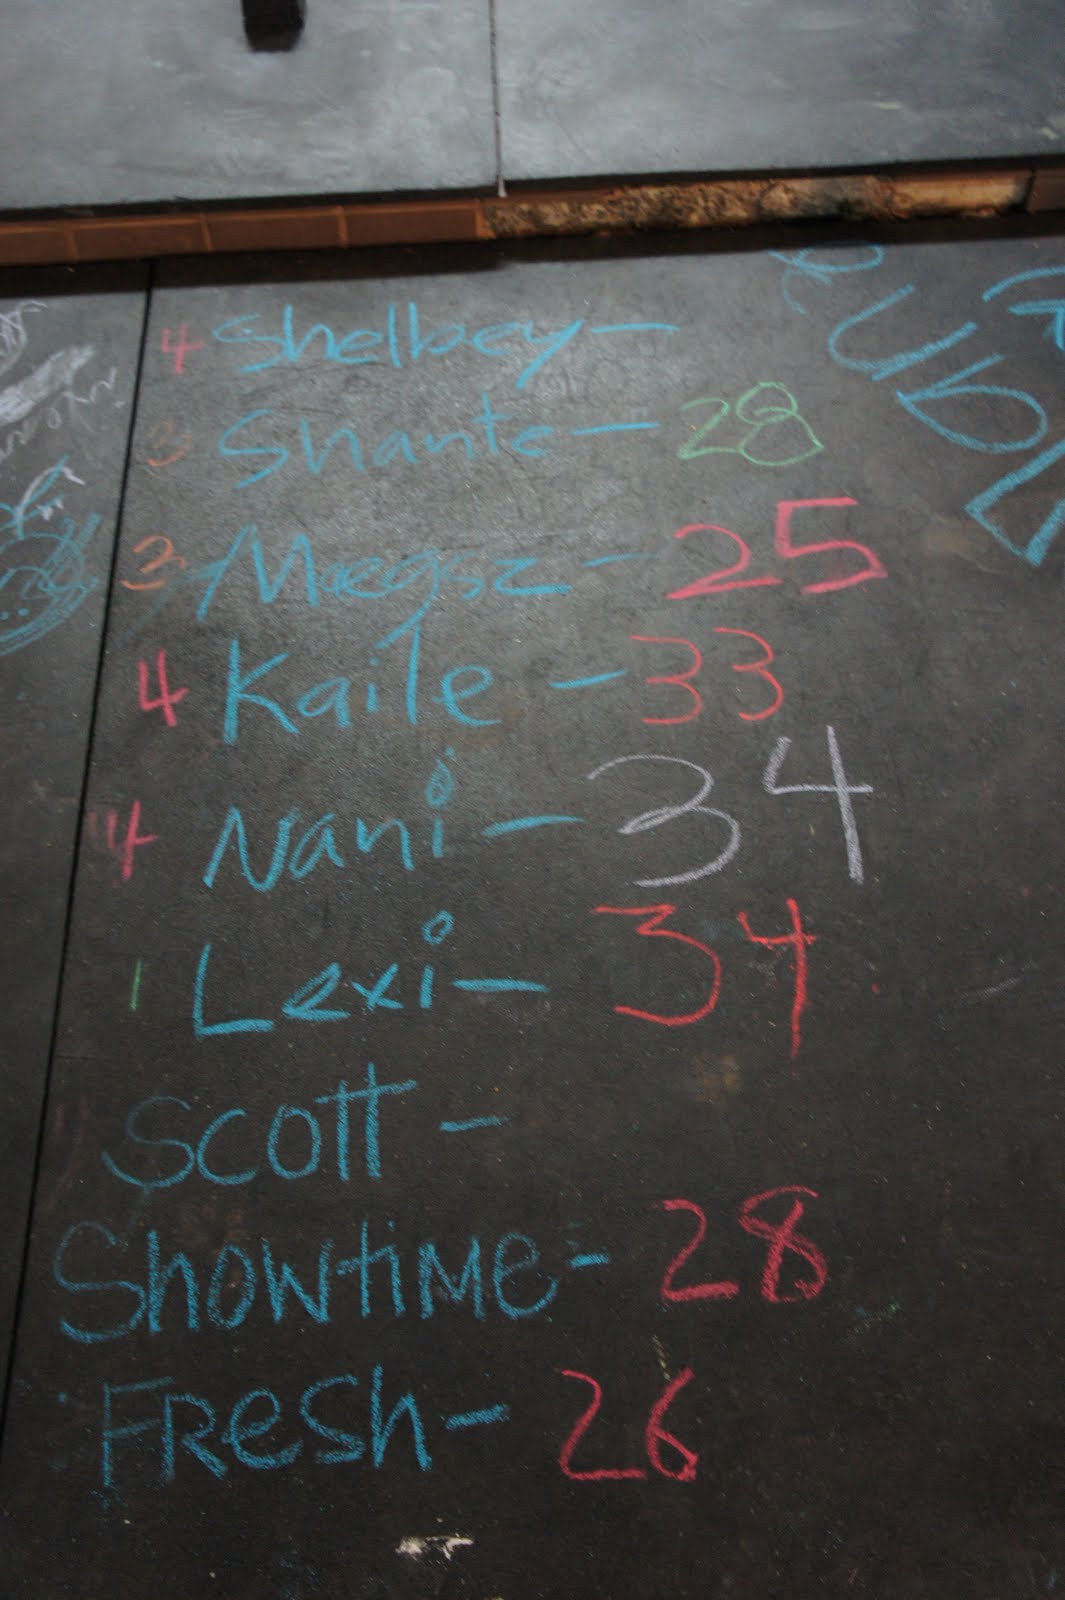 4 Shelbey -
3 Shante - 28
3 Maegsz - 25
4 Kaile - 33
4 Nani - 34
1 Lexi - 34
Scott -
Showtime - 28
Fresh - 26